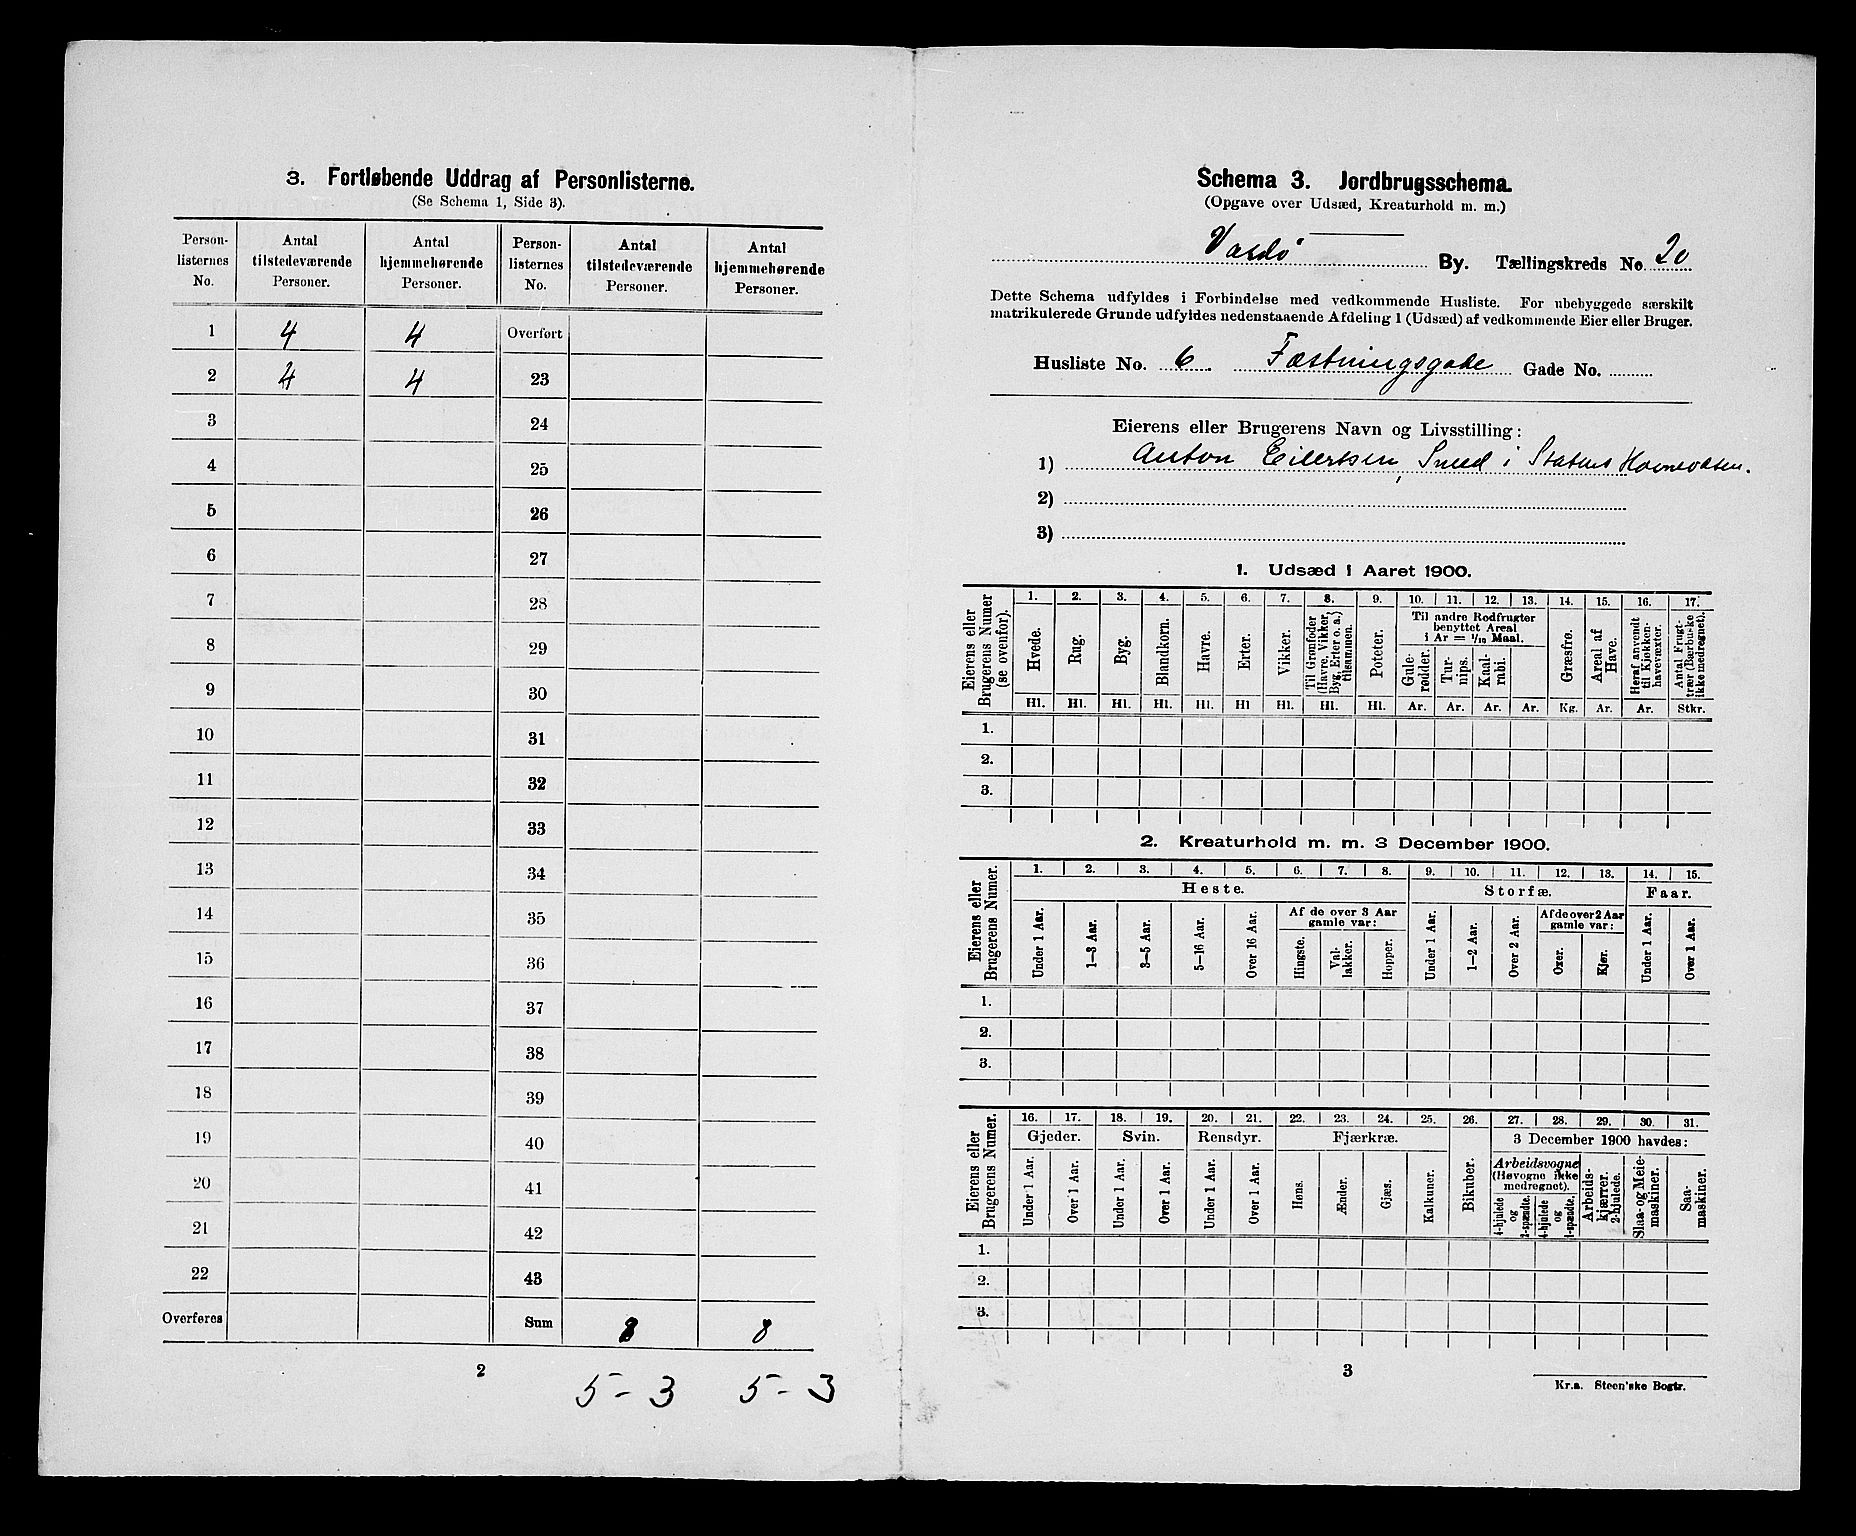 3. Fortløbende Uddrag af Personlisterne.
(Se Schema 1, Side 3).
Person-listernes No. Antal tilstedeværende Personer. Antal hjemmehørende Personer. Person-listernes No. Antal tilstedeværende Personer. Antal hjemmehørende Personer.
1 4 4 Overført
2 4 4 23
3 24
4 25
5 26
6 27
7 28
8 29
9 30
10 31
11 32
12 33
13 34
14 35
15 36
16 37
17 38
18 39
19 40
20 41
21 42
22 43
Overføres Sum 8 8
2
5-3 5-3
Schema 3. Jordbrugsschema.
(Opgave over Udsæd, Kreaturhold m. m.)
Vardø By. Tællingskreds No. 20
Dette Schema udfyldes i Forbindelse med vedkommende Husliste. For ubebyggede særskilt
matrikulerede Grunde udfyldes nedenstaaende Afdeling 1 (Udsæd) af vedkommende Eier eller Bruger.
Husliste No. 6. Fæstningsgade Gade No.
Eierens eller Brugerens Navn og Livsstilling:
1) Anton Eilertsen, Smed i Statens Havnevæsen.
2)
3)
1. Udsæd i Aaret 1900.
Eierens eller Brugerens Numer (se ovenfor).
1. 2. 3. 4. 5. 6. 7. 8. 9. 10. 11. 12. 13. 14. 15. 16. 17.
Til andre Rodfrugter benyttet Areal i Ar = 1/10 Maal.
Hvede. Rug. Byg. Blandkorn. Havre. Erter. Vikker. Til Grønfoder (Havre, Vikker, Byg, Erter o. a.) tilsammen. Poteter. Gule-rødder. Tur-nips. Kaal-rabi. Græsfrø. Areal af Have. Heraf anvendt til Kjøkken-havevexter. Antal Frugt-trær (Bærbuske ikke medregnet).
Hl. Hl. Hl. Hl. Hl. Hl Hl. Hl. Hl. Ar. Ar. Ar. Ar. Kg. Ar. Ar. Stkr.
1.
2.
3.
2. Kreaturhold m. m. 3 December 1900.
Eierens eller Brugerens Numer.
1. 2. 3. 4. 5. 6. 7. 8. 9. 10. 11. 12. 13. 14. 15.
Heste. Storfæ. Faar.
Af de over 3 Aar gamle var: Af de over 2 Aar gamle var:
Under 1 Aar. 1—3 Aar. 3—5 Aar. 5—16 Aar. Over 16 Aar. Hingste. Val-lakker. Hopper. Under 1 Aar. 1—2 Aar. Over 2 Aar. Oxer. Kjør. Under 1 Aar. Over 1 Aar.
1.
2.
3.
Eierens eller Brugerens Numer.
16. 17. 18. 19. 20. 21. 22. 23. 24. 25. 26. 27. 28. 29. 30. 31.
Gjeder. Svin. Rensdyr. Fjærkræ. 3 December 1900 havdes:
Under 1 Aar. Over 1 Aar. Under 1 Aar. Over 1 Aar. Under 1 Aar. Over 1 Aar. Høns. Ænder. Gjæs. Kalkuner. Bikuber. Arbeidsvogne (Høvogne ikke medregnet). 4-hjulede og 2-spændte. 4-hjulede og 1-spændte. Arbeids-kjærrer. 2-hjulede. Slaa- og Meie-maskiner. Saa-maskiner.
1.
2.
3.
3
Kr.a. Steen'ske Bogtr.